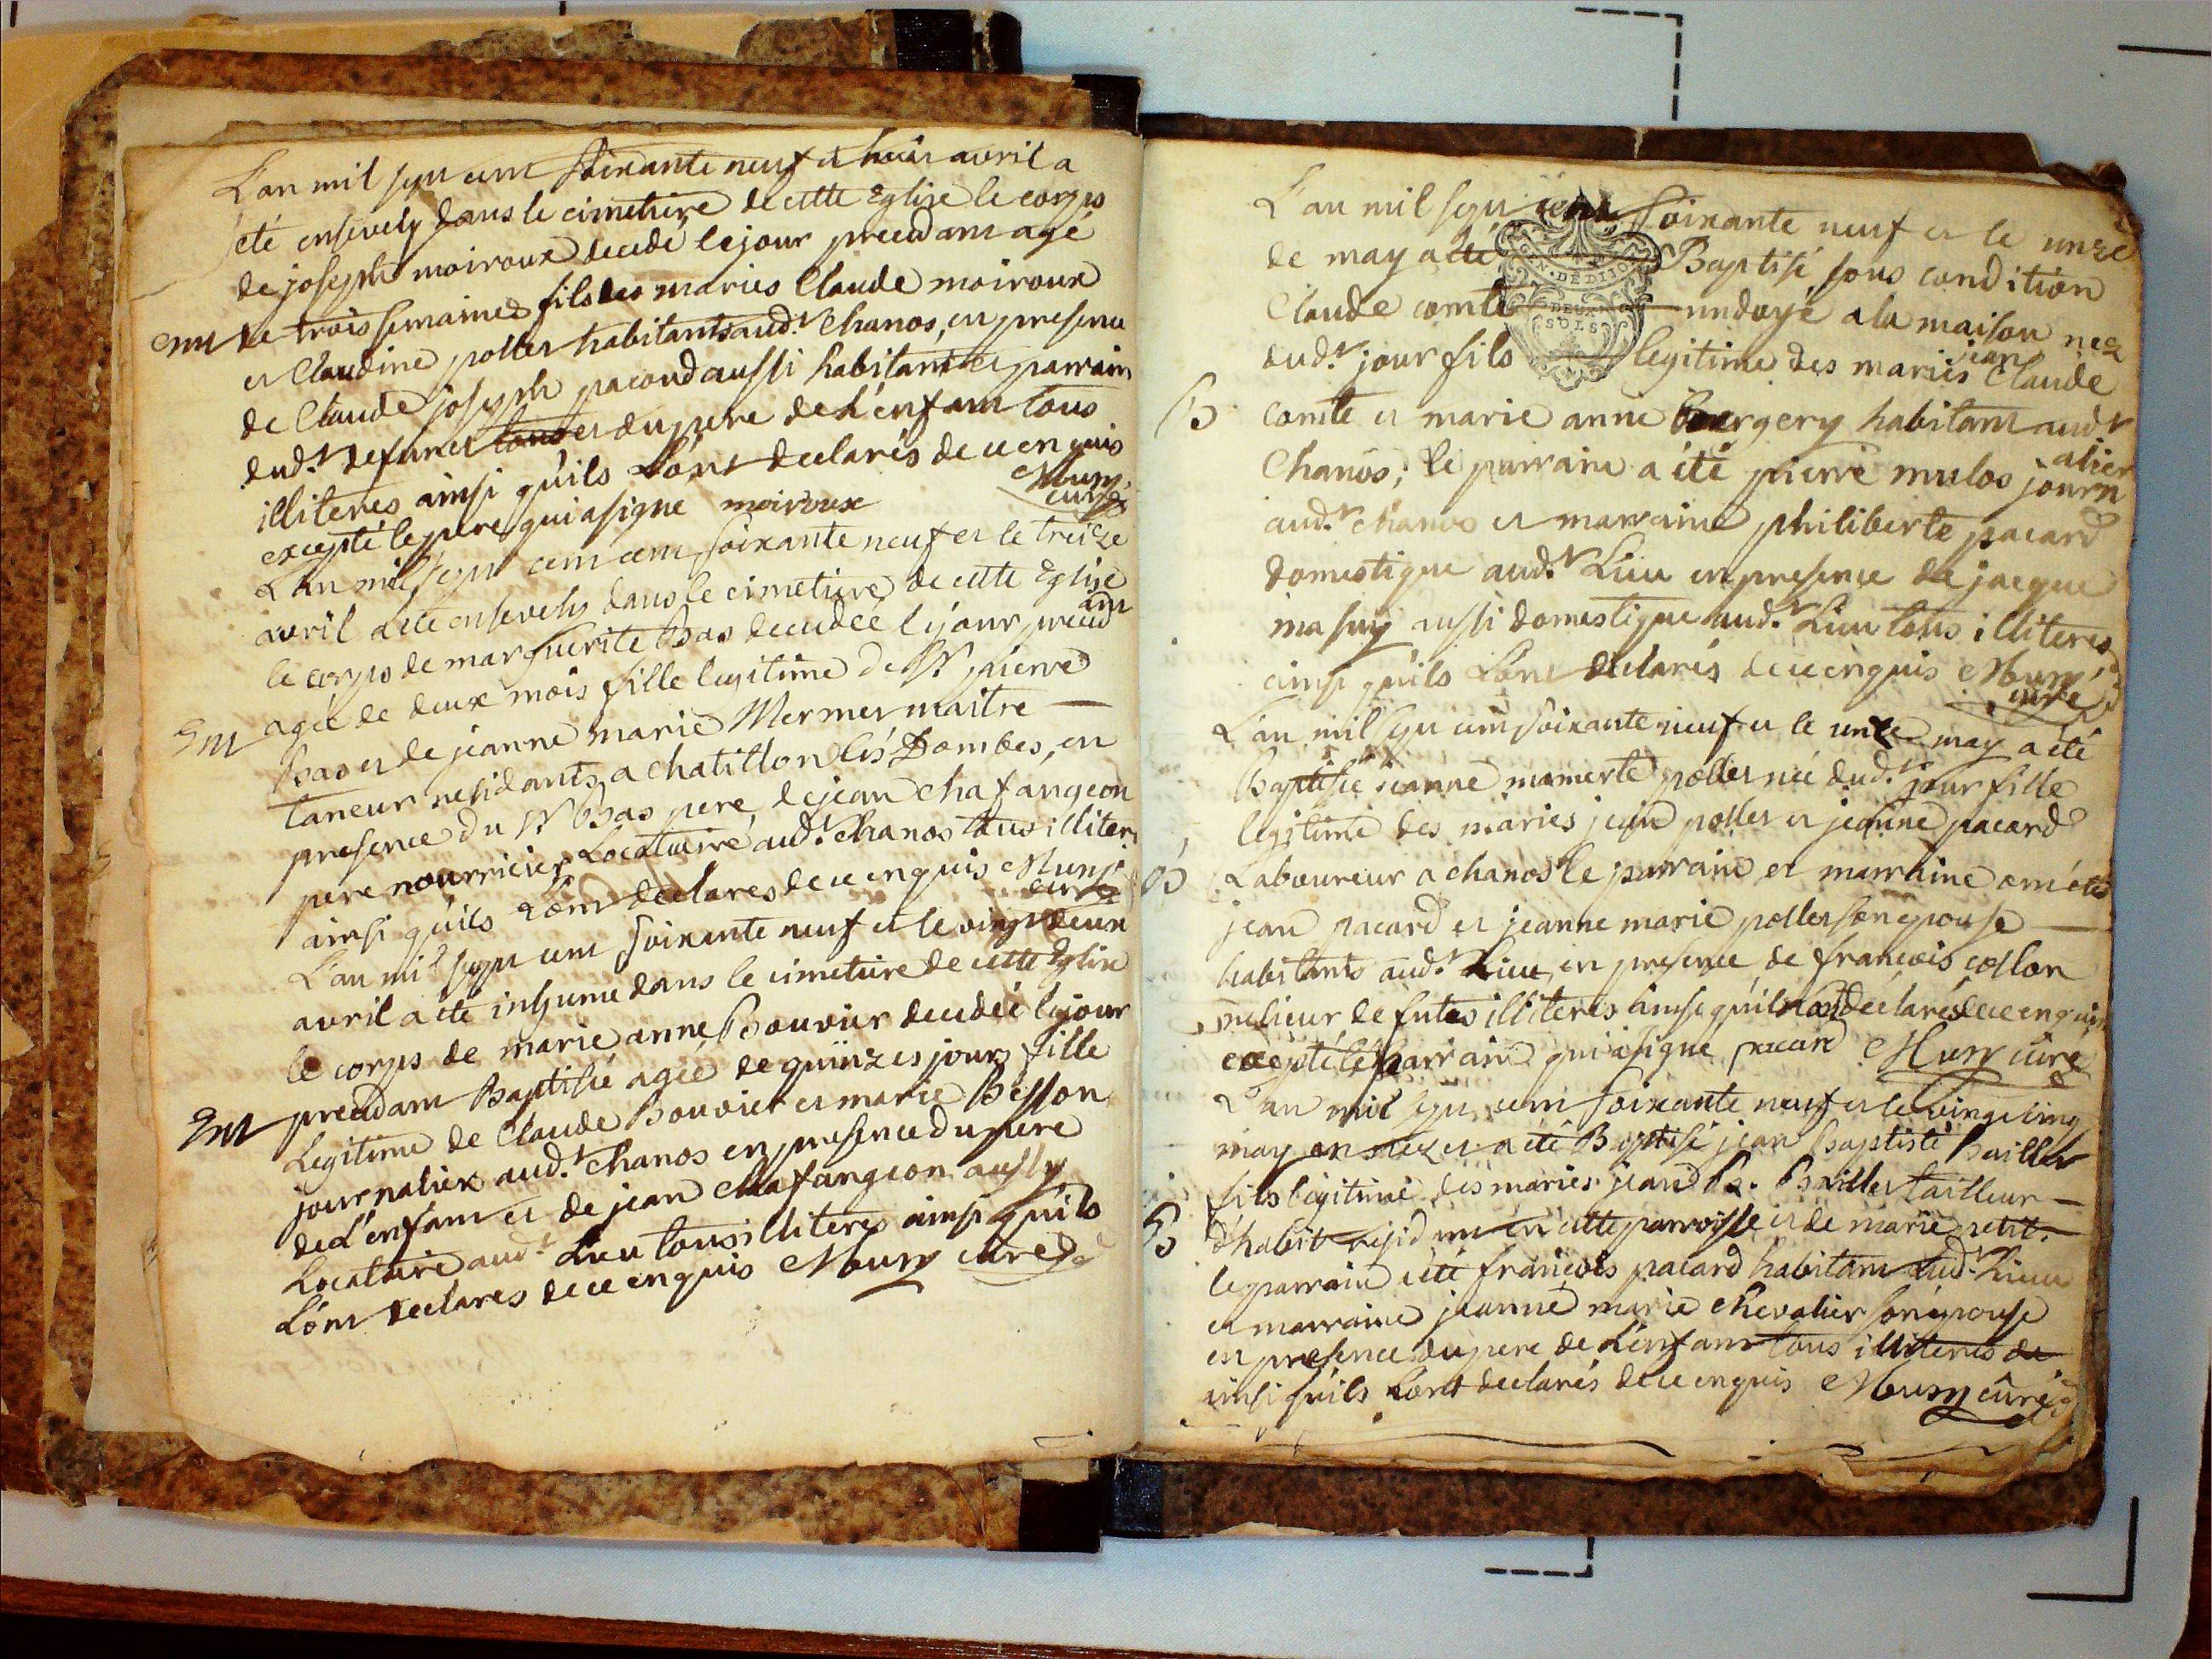 L'an mil sept cent soixante neuf et huit avril a
été ensevely dans le cimetiere de cette Eglise le corps
de joseph moiroux decedé le jour precedant agé
ent de trois semaines fils des maries Claude moiroux
et Claudine pollet habitants aud.t Chanos, en presence
de Claude joseph pacoud aussi habitant et parrain
dud.t defunct tous et du pere de L'enfant tous
illiteres ainsi qu'ils L'ont declarés de ce enquis
excepté le pere qui a signe moiroux Musy curé
L'an mil sept cent cent soixante neuf et le treize
avril a eté ensevely dans le cimetiere de cette Eglise
le corps de marguerite Bas decedée le jour preced
ant
agée de deux mois fille legitime de Sr pierre
Ent
Bas et de jeanne marie Mermet maitre
taneur residants a chatillon lés Dombes, en
presence du Sr Bas pere, de jean chafangeon
pere nourricier Locataire aud.t Chanos tous illiteres
ainsi qu'ils L'ont declares de ce enquis Musy
curé
L'an mil sept cent soixante neuf et le vingt deux
avril a eté inhume dans le cimetiere de cette Eglise
le corps de marie anne Bouvier decedée le jour
Ent precedant Baptisée agée de quinzes jours fille
Legitime de Claude Bouvier et marie Besson
journalier aud.t Chanos en presence du pere
de L'enfant et de jean chafangeon aussy
Locataire aud.t Lieu tous illiteres ainsi qu'ils
L'ont declares de ce enquis Musy curé
L'an mil sept cent soixante neuf et le unze
de may a eté Baptisé sous condition
GEN. DE DIJON
DEUX SOLS
Claude comte undoyé a la maison nee
dud.t jour fils legitime des mariés jean Claude
B comte et marie anne Bergery habitant aud.t
Chanos; le parrain a été pierre mulos journ
alier
aud.t chanos et marraine philiberte pacard
domestique aud.t Lieu en presence de jacque
masuy aussi domestique aud.t Lieu tous illiteres
ainsi qu'ils L'ont declarés de ce enquis Musy
curé
L'an mil sept cent soixante neuf et le unze may a eté
Baptisée jeanne mamerte pollet née dud.t jour fille
legitime des maries jean pollet et jeanne pacard
B Laboureur a chanos le parrain et marraine ont étés
jean pacard et jeanne marie pollet son epouse
habitants aud.t Lieu, en presence de francois collon
relieur de futes illiteres ainsi qu'ils ont declarés de ce enquis
excepté le parrain qui a signe pacard Musy curé
L'an mil sept cent soixante neuf et le vingt cinq
may a été Baptisé jean Baptiste Baillet
fils legitime des mariés jean B. Baillet tailleur
B d'habit resident en cette parroisse et de marie petit.
le parrain a été francois pacard habitant aud.t Lieu
et marraine jeanne marie chevalier son epouse
en presence du pere de L'enfant tous illiteres de
ainsi qu'ils L'ont declarés de ce enquis Musy curé